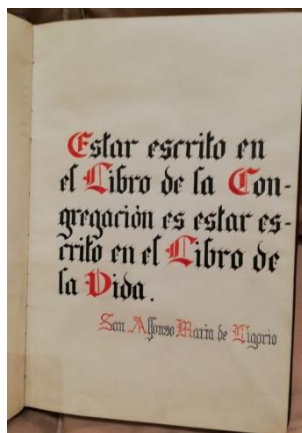 Estar escrito en
el Libro de la Con-
gregación es estar es-
crito en el Libro de
la Vida.
San Alfonso Maria de Ligorio